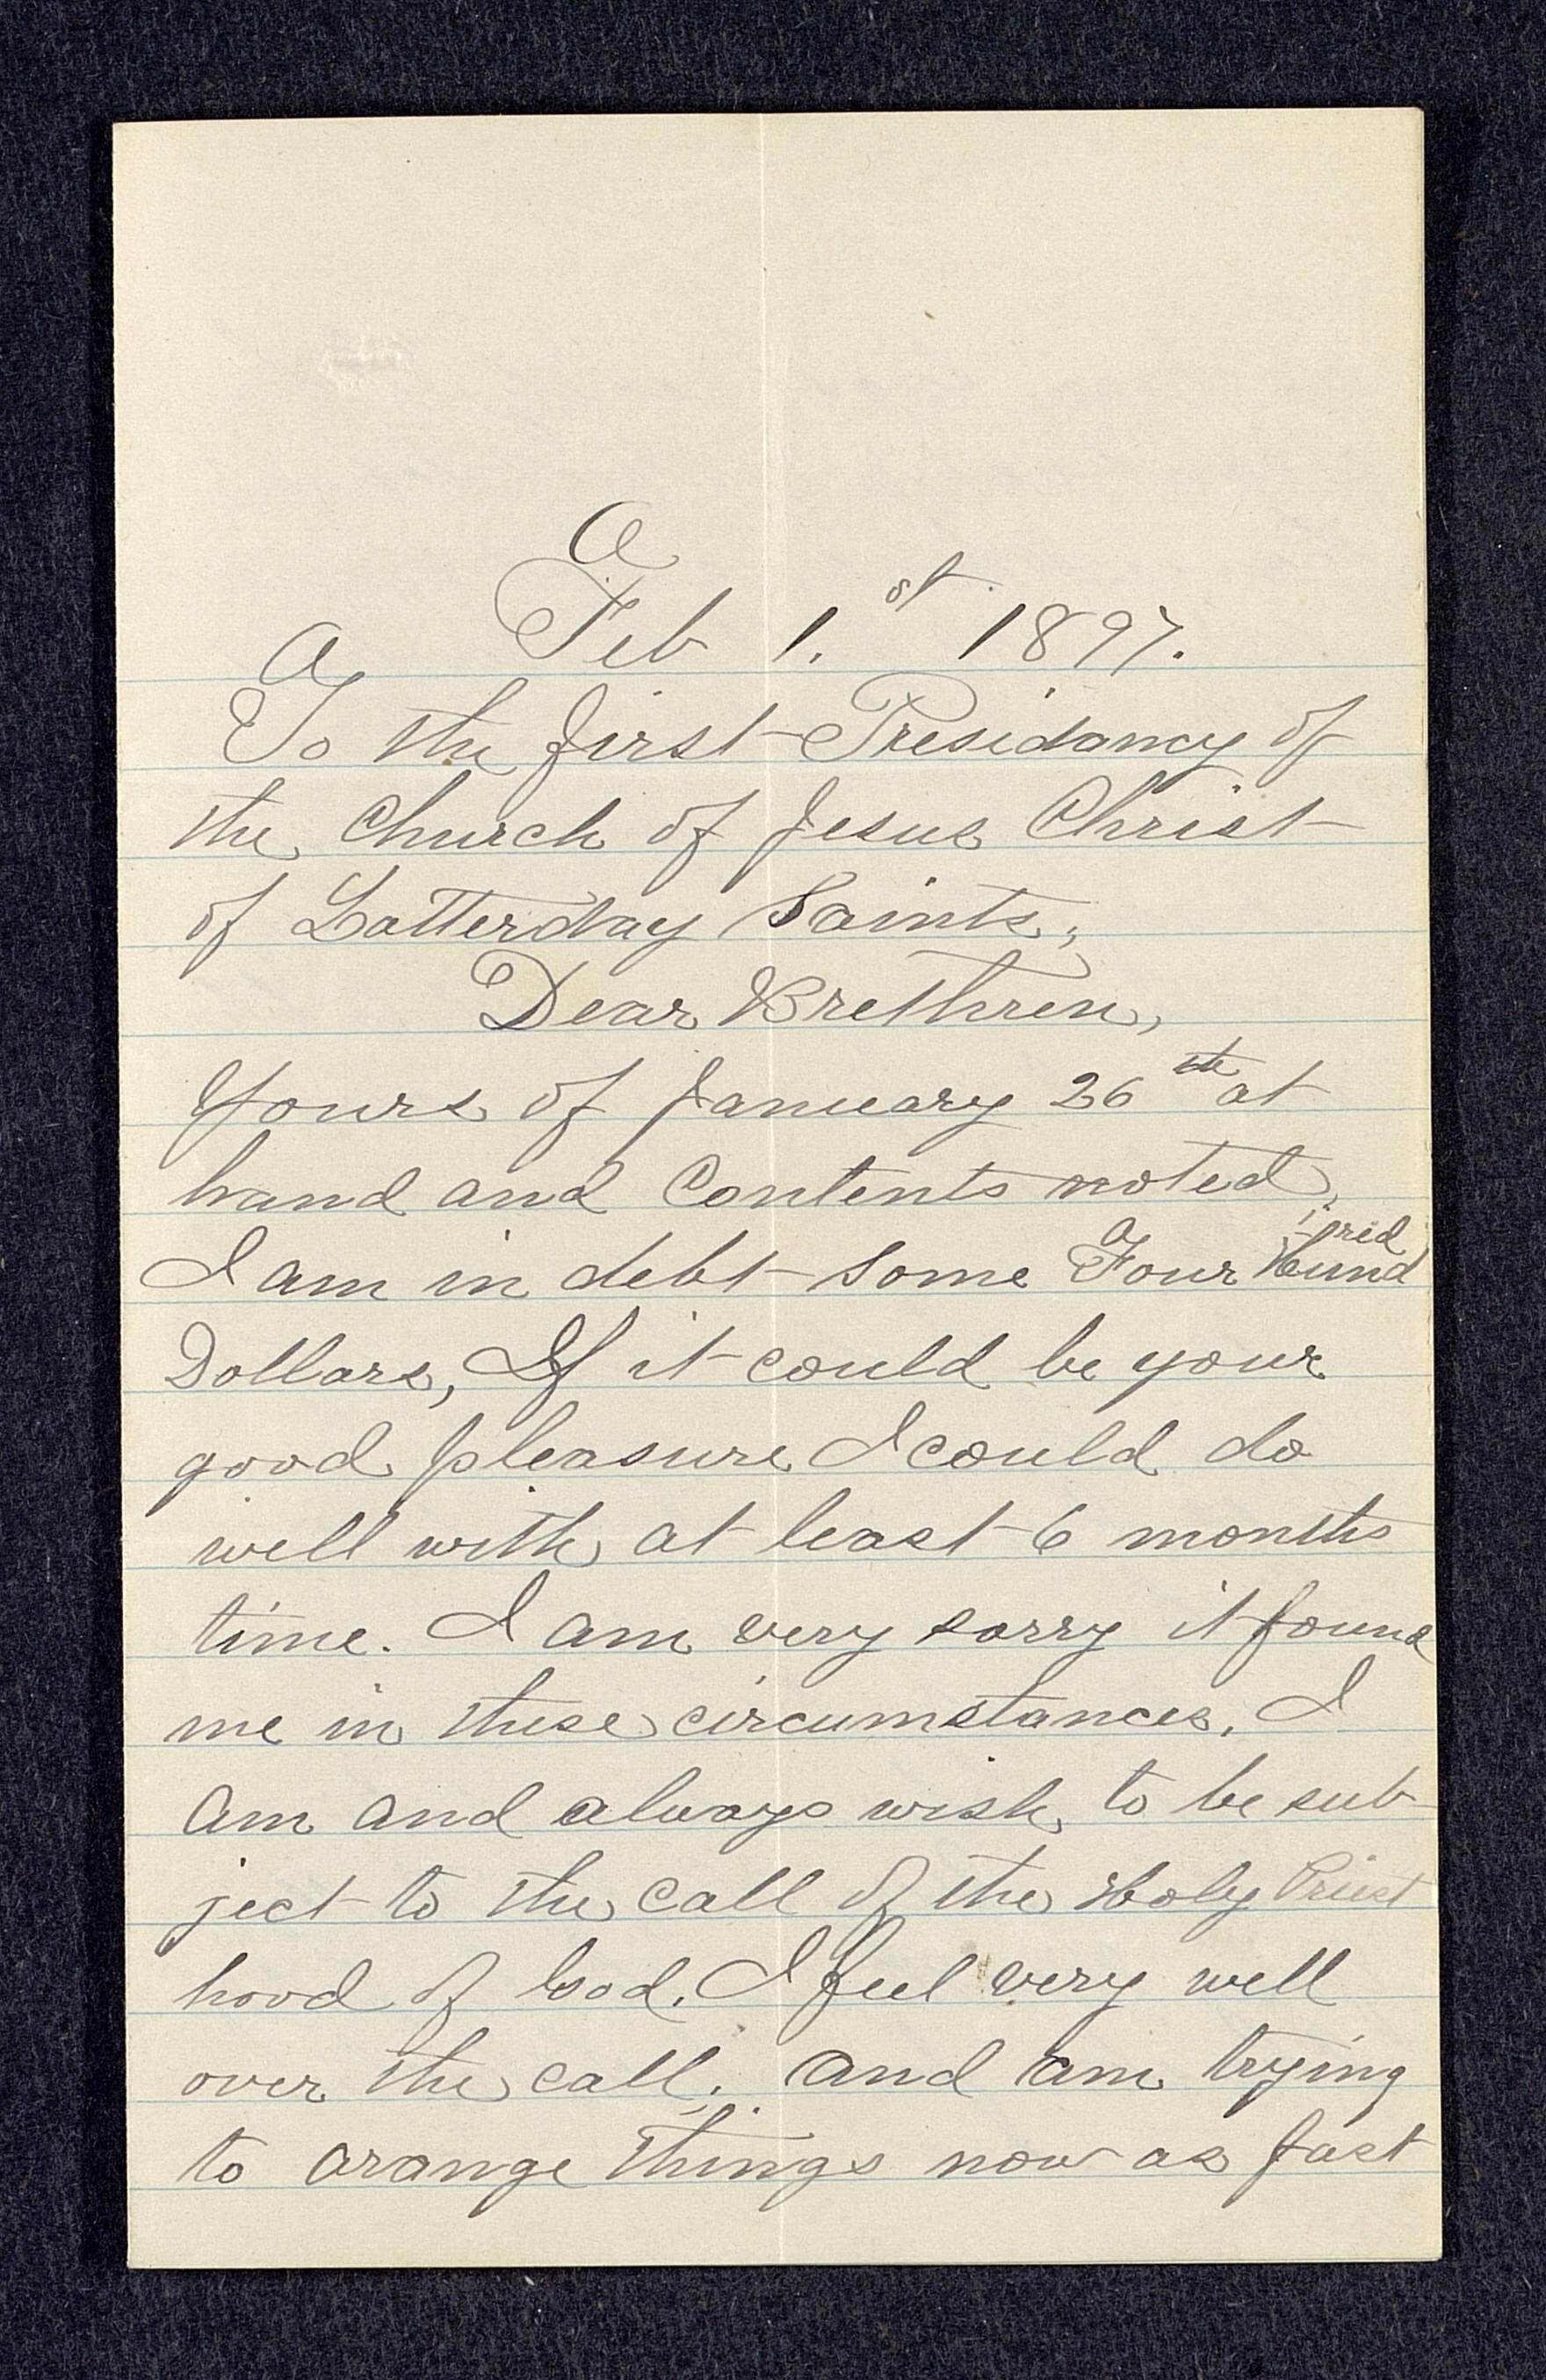 Feb 1.st 1897.
To the first Presidancy of
the Church of Jesus Christ
of Latterday Saints,
Dear Brethren,
Yours of January 26th at
hand and Contents noted,
I am in debt some Four Hundred
Dollars, If it could be your
good pleasure I could do
well with at least 6 months
time. I am very sorry it found
me in these circumstances. I
am and always wish to be sub
ject to the call of the Holy Priest
hood of God. I feel very well
over the call, and am trying
to arange things now as fast